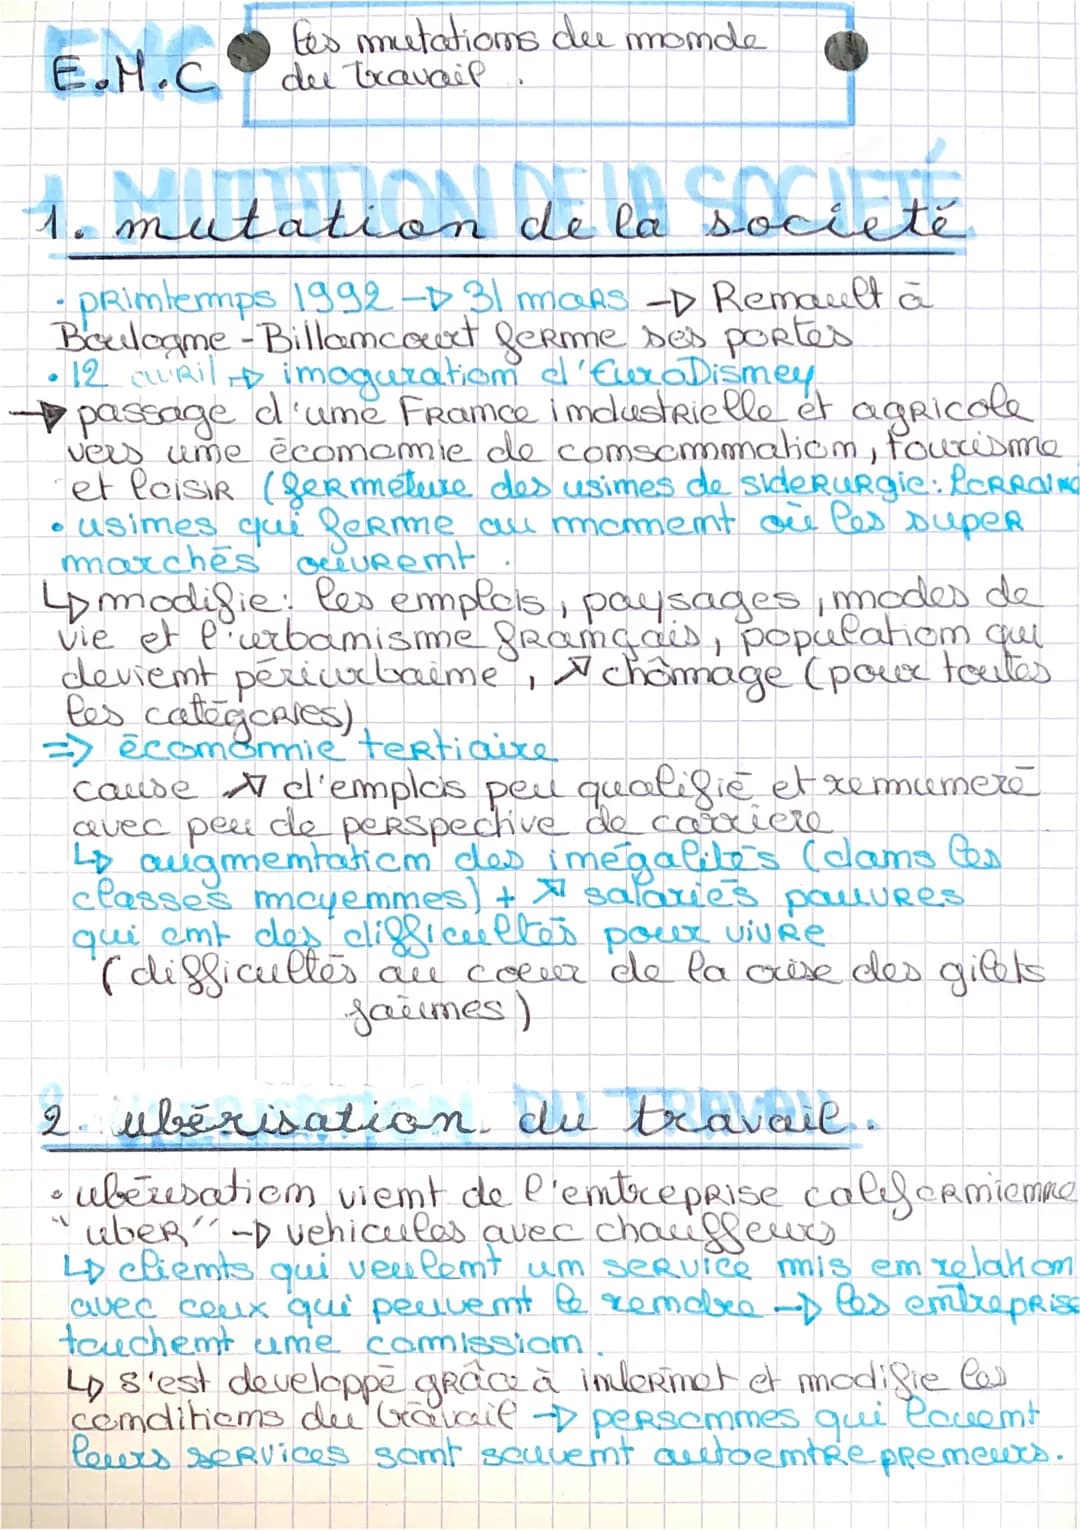 EMC
E.M.C
Les mutations du monde
du travail.
1. MUTATION DE LA SOCIETÉ
1. mutation de la societé
· printemps 1992 → 31 mars → Renault à
Boulogne-Billancourt ferme ses portes
• 12 avril → inoguration d'EuroDisney
→ passage d'une France industrielle et agricole
vers une économie de consommation, tourisme
et loisir (fermeture des usines de siderurgie: Lorraine
• usines qui ferme au moment où les super
marchés ouvrent.
↳ modifie: les emplois, paysages, modes de
vie et l'urbanisme français, population qui
devient périurbaine, ↗ chômage (pour toutes
les catégories)
=> économie tertiaire
cause ↗ d'emplois peu qualifié et remunéré
avec peu de perspective de carriere
↳ augmentation des inégalités (dans les
classes moyennes) + ↗ salariés pauvres
qui ont des difficultés pour vivre
(difficultés au coeur de la crise des gilets
jaunes)
2. ubérisation du travail.
• ubérisation vient de l'entreprise californienne
"uber" → vehicules avec chauffeurs
↳ clients qui veulent un service mis en relation
avec ceux qui peuvent le rendre → les entreprise
touchent une comission.
↳ s'est developpé grâce à internet et modifie les
conditions du travail → personnes qui louent
leurs services sont souvent autoentrepreneurs.